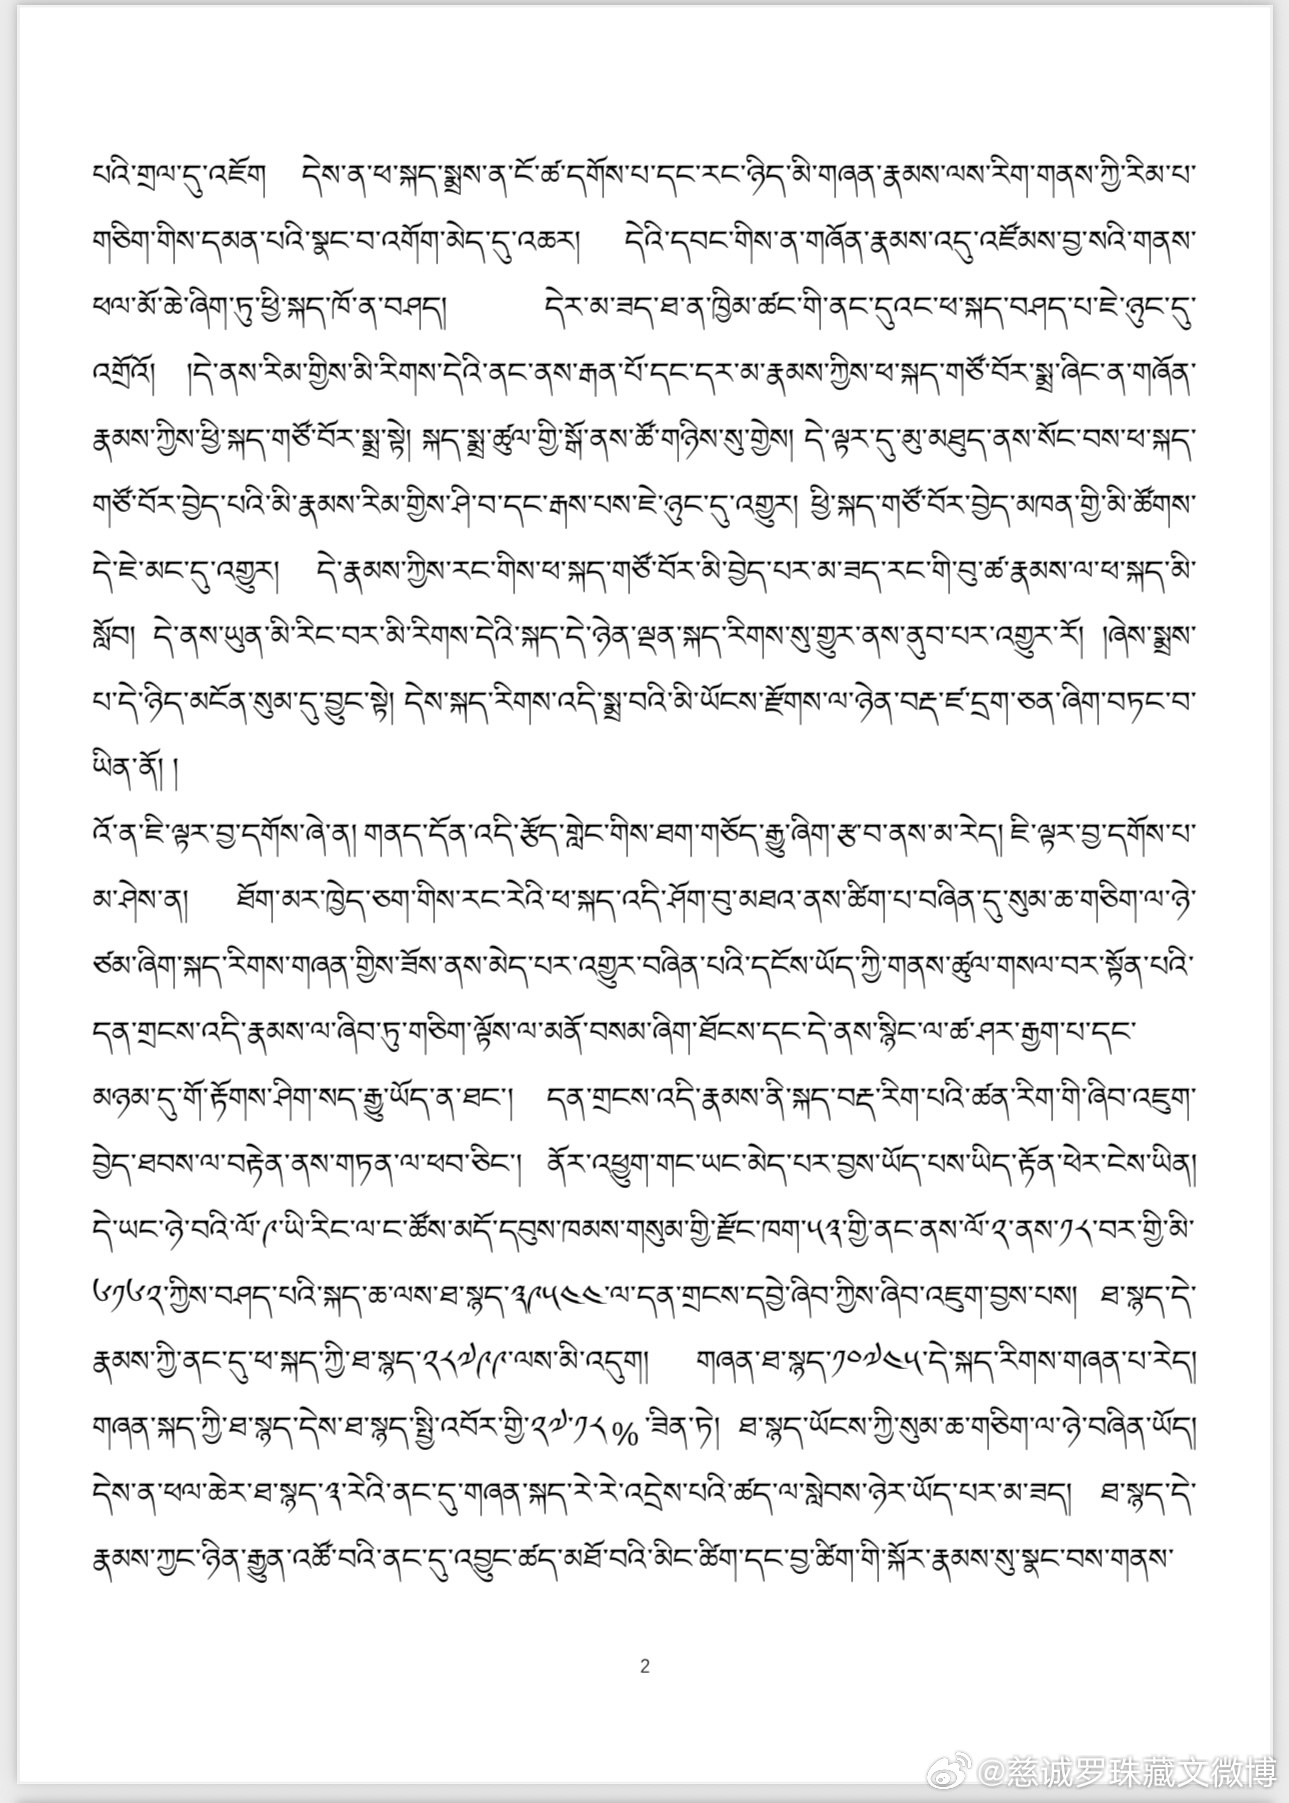 པའི་གྲལ་དུ་འཇོག དེས་ན་ཕ་སྐད་སྨྲས་ན་ངོ་ཚ་དགོས་པ་དང་རང་ཉིད་མི་གཞན་རྣམས་ལས་རིག་གནས་ཀྱི་རིམ་པ་
གཅིག་གིས་དམན་པའི་སྣང་བ་འགོག་མེད་དུ་འཆར། དེའི་དབང་གིས་ན་གཞོན་རྣམས་འདུ་འཛོམས་བྱ་སའི་གནས་
ཕལ་མོ་ཆེ་ཞིག་ཏུ་ཕྱི་སྐད་ཁོ་ན་བཤད། དེར་མ་ཟད་ཐ་ན་ཁྱིམ་ཚང་གི་ནང་དུའང་ཕ་སྐད་བཤད་པ་ཇེ་ཉུང་དུ་
འགྲོའོ། །དེ་ནས་རིམ་གྱིས་མི་རིགས་དེའི་ནང་ནས་རྒན་པོ་དང་དར་མ་རྣམས་ཀྱིས་ཕ་སྐད་གཙོ་བོར་སྨྲ་ཞིང་ན་གཞོན་
རྣམས་ཀྱིས་ཕྱི་སྐད་གཙོ་བོར་སྨྲ་སྟེ། སྐད་སྨྲ་ཚུལ་གྱི་སྒོ་ནས་ཚོ་གཉིས་སུ་གྱེས། དེ་ལྟར་དུ་མུ་མཐུད་ནས་སོང་བས་ཕ་སྐད་
གཙོ་བོར་བྱེད་པའི་མི་རྣམས་རིམ་གྱིས་ཤི་བ་དང་རྒས་པས་ཇེ་ཉུང་དུ་འགྱུར། ཕྱི་སྐད་གཙོ་བོར་བྱེད་མཁན་གྱི་མི་ཚོགས་
དེ་ཇེ་མང་དུ་འགྱུར། དེ་རྣམས་ཀྱིས་རང་གིས་ཕ་སྐད་གཙོ་བོར་མི་བྱེད་པར་མ་ཟད་རང་གི་བུ་ཚ་རྣམས་ལ་ཕ་སྐད་མི་
སློབ། དེ་ནས་ཡུན་མི་རིང་བར་མི་རིགས་དེའི་སྐད་དེ་ཉེན་ལྡན་སྐད་རིགས་སུ་གྱུར་ནས་ནུབ་པར་འགྱུར་རོ། །ཞེས་སྨྲས་
པ་དེ་ཉིད་མངོན་སུམ་དུ་བྱུང་སྟེ། དེས་སྐད་རིགས་འདི་སྨྲ་བའི་མི་ཡོངས་རྫོགས་ལ་ཉེན་བརྡ་ཛ་དྲག་ཅན་ཞིག་བཏང་བ་
ཡིན་ནོ། །
འོ་ན་ཇི་ལྟར་བྱ་དགོས་ཞེ་ན། གནད་དོན་འདི་རྩོད་གླེང་གིས་ཐག་གཅོད་རྒྱུ་ཞིག་རྩ་བ་ནས་མ་རེད། ཇི་ལྟར་བྱ་དགོས་པ་
མ་ཤེས་ན། ཐོག་མར་ཁྱེད་ཅག་གིས་རང་རེའི་ཕ་སྐད་འདི་ཤོག་བུ་མཐའ་ནས་ཚིག་པ་བཞིན་དུ་སུམ་ཆ་གཅིག་ལ་ཉེ་
ཙམ་ཞིག་སྐད་རིགས་གཞན་གྱིས་ཟོས་ནས་མེད་པར་འགྱུར་བཞིན་པའི་དངོས་ཡོད་ཀྱི་གནས་ཚུལ་གསལ་བར་སྟོན་པའི་
དན་གྲངས་འདི་རྣམས་ལ་ཞིབ་ཏུ་གཅིག་ལྟོས་ལ་མནོ་བསམ་ཞིག་ཐོངས་དང་དེ་ནས་སྙིང་ལ་ཚ་ཤར་རྒྱག་པ་དང་
མཉམ་དུ་གོ་རྟོགས་ཤིག་སད་རྒྱུ་ཡོད་ན་ཐང་། དན་གྲངས་འདི་རྣམས་ནི་སྐད་བརྡ་རིག་པའི་ཚན་རིག་གི་ཞིབ་འཇུག་
བྱེད་ཐབས་ལ་བརྟེན་ནས་གཏན་ལ་ཕབ་ཅིང་། ནོར་འཕྱུག་གང་ཡང་མེད་པར་བྱས་ཡོད་པས་ཡིད་རྟོན་ཕེར་ངེས་ཡིན།
དེ་ཡང་ཉེ་བའི་ལོ་༩་ཡི་རིང་ལ་ང་ཚོས་མདོ་དབུས་ཁམས་གསུམ་གྱི་རྫོང་ཁག་༥༣་གྱི་ནང་ནས་ལོ་༢་ནས་༡༨་བར་གྱི་མི་
༦༡༦༢་ཀྱིས་བཤད་པའི་སྐད་ཆ་ལས་ཐ་སྙད་༣༩༥༤༤་ལ་དན་གྲངས་དབྱེ་ཞིབ་ཀྱིས་ཞིབ་འཇུག་བྱས་པས། ཐ་སྙད་དེ་
རྣམས་ཀྱི་ནང་དུ་ཕ་སྐད་ཀྱི་ཐ་སྙད་༢༨༧༩༩་ལས་མི་འདུག། གཞན་ཐ་སྙད་༡༠༧༤༥་དེ་སྐད་རིགས་གཞན་པ་རེད།
གཞན་སྐད་ཀྱི་ཐ་སྙད་དེས་ཐ་སྙད་སྤྱི་འབོར་གྱི་༢༧་༡༨%་ཟིན་ཏེ། ཐ་སྙད་ཡོངས་ཀྱི་སུམ་ཆ་གཅིག་ལ་ཉེ་བཞིན་ཡོད།
དེས་ན་ཕལ་ཆེར་ཐ་སྙད་༣་རེའི་ནང་དུ་གཞན་སྐད་རེ་རེ་འདྲེས་པའི་ཚད་ལ་སླེབས་ཉེར་ཡོད་པར་མ་ཟད། ཐ་སྙད་དེ་
རྣམས་ཀྱང་ཉིན་རྒྱུན་འཚོ་བའི་ནང་དུ་འབྱུང་ཚད་མཐོ་བའི་མིང་ཚིག་དང་བྱ་ཚིག་གི་སྐོར་རྣམས་སུ་སྣང་བས་གནས་
2
@慈诚罗珠藏文微博